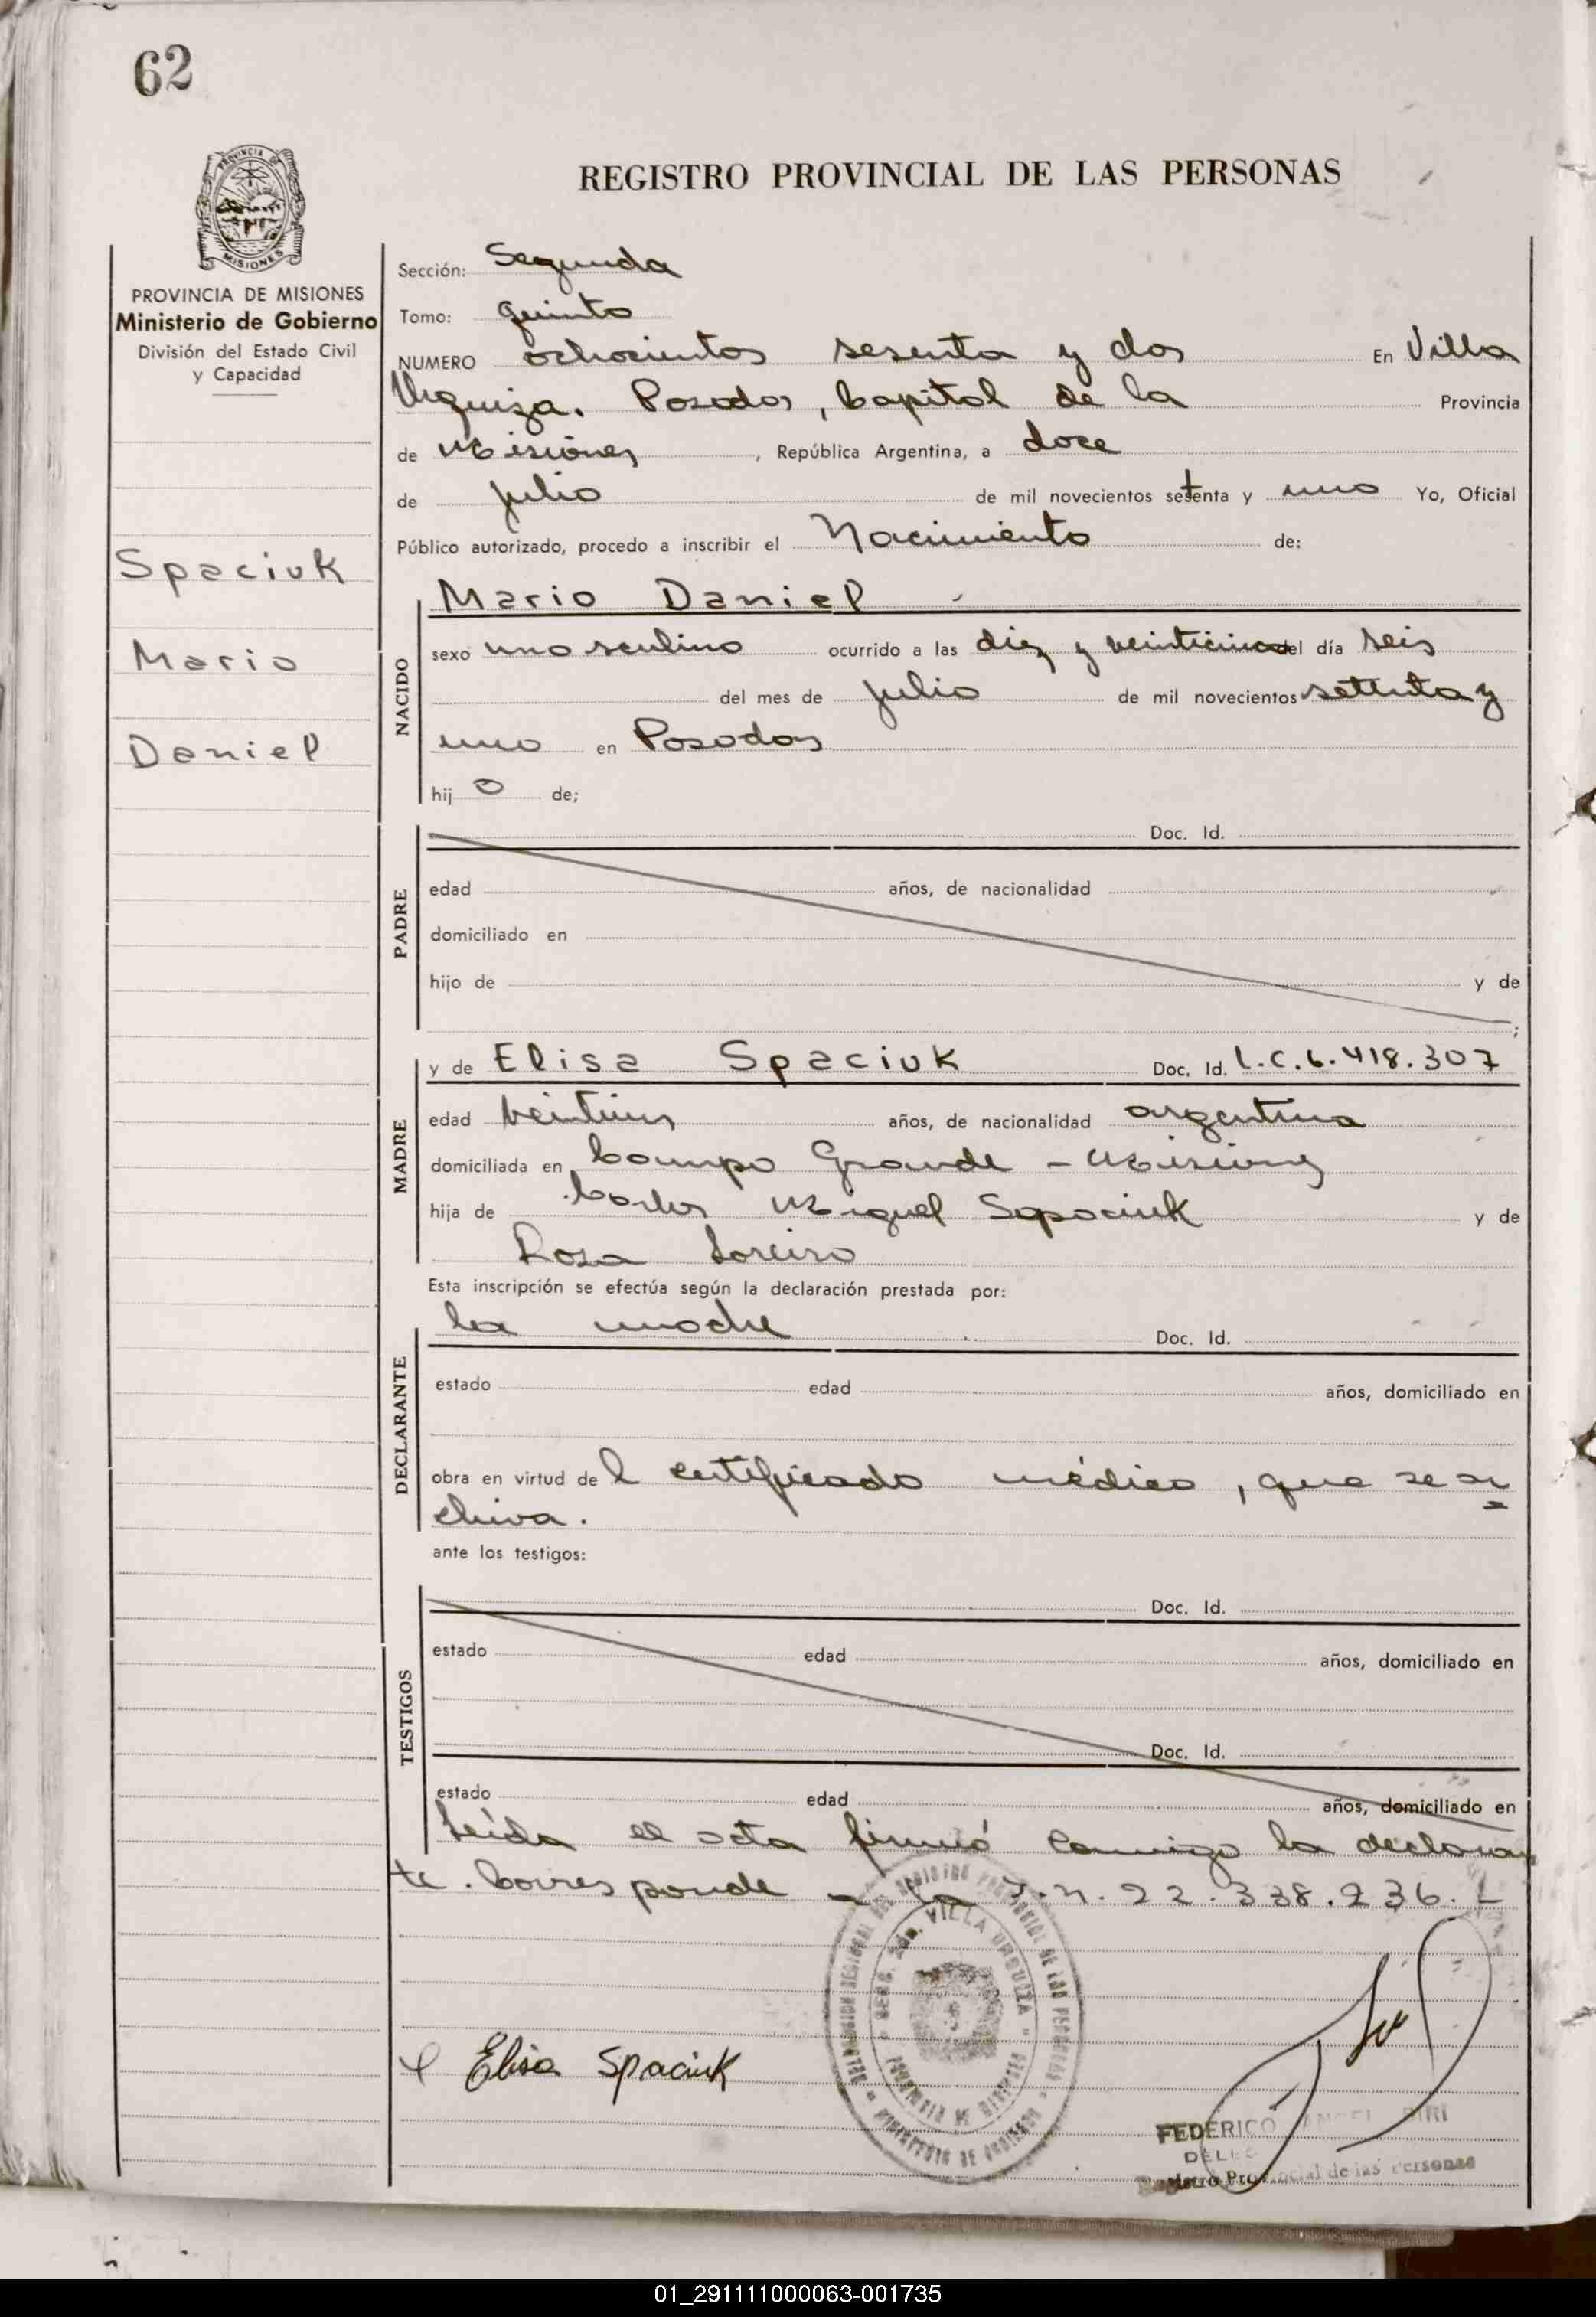 62
REGISTRO PROVINCIAL DE LAS PERSONAS
PROVINCIA DE
MISIONES
PROVINCIA DE MISIONES
Ministerio de Gobierno
División del Estado Civil
y Capacidad
Spaciuk
Mario
Daniel
Sección: Segunda
Tomo: quinto
NUMERO ochocientos sesenta y dos En Villa
Urquiza. Posadas, Capital de la Provincia
de Misiones, República Argentina, a doce
de julio de mil novecientos setenta y uno Yo, Oficial
Público autorizado, procedo a inscribir el Nacimiento de:
NACIDO
Mario Daniel
sexo masculino ocurrido a las diez y veinticinco del día seis
del mes de julio de mil novecientos setenta y
uno en Posadas
hijo de;
PADRE
Doc. Id.
edad años, de nacionalidad
domiciliado en
hijo de y de
;
MADRE
y de Elisa Spaciuk Doc. Id. L.C. 6.418.307
edad años, de nacionalidad argentina
domiciliada en Campo Grande - Misiones
hija de Carlos Miguel Spaciuk y de
Rosa
Esta inscripción se efectúa según la declaración prestada por:
DECLARANTE
la madre Doc. Id.
estado edad años, domiciliado en
obra en virtud del certificado médico, que se ar
chiva.
ante los testigos:
TESTIGOS
Doc. Id.
estado edad años, domiciliado en
Doc. Id.
estado edad años, domiciliado en
Leída el acta firmó conmigo la declaran
te. Corresponde a la 22.338.236.
VILLA URQUIZA
PROVINCIA DE MISIONES
MINISTERIO DE GOBIERNO
Elisa Spaciuk
FEDERICO ANGEL
Registro Provincial de las Personas
01_291111000063-001735